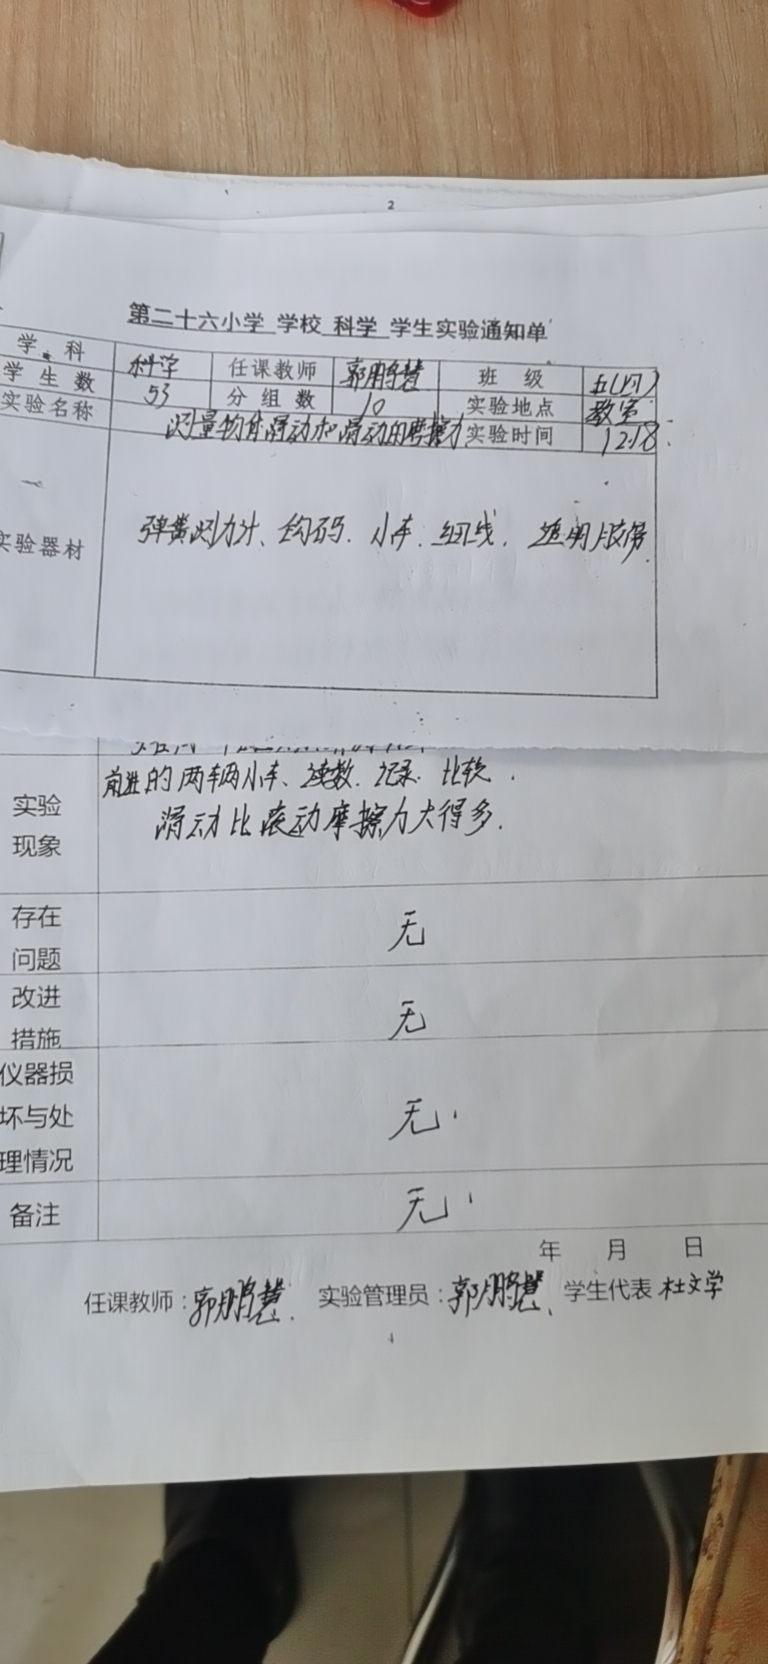 2
第二十六小学 学校 科学 学生实验通知单
学 科 科学 任课教师 郭鹏慧 班 级 五(四)
学 生 数 53 分 组 数 10 实验地点 教室
实验名称 测量物体滑动和滑动的摩擦力 实验时间 12.18
实验器材 弹簧测力计、钩码、小车、细线、透明胶带.
前进的两车辆小车、读数、记录、比较.
实验
现象 滑动比滚动摩擦力大得多.
存在
问题 无
改进
措施 无
仪器损
坏与处 无
理情况
备注 无
年 月 日
任课教师:郭鹏慧. 实验管理员:郭鹏慧、 学生代表 杜文学
4